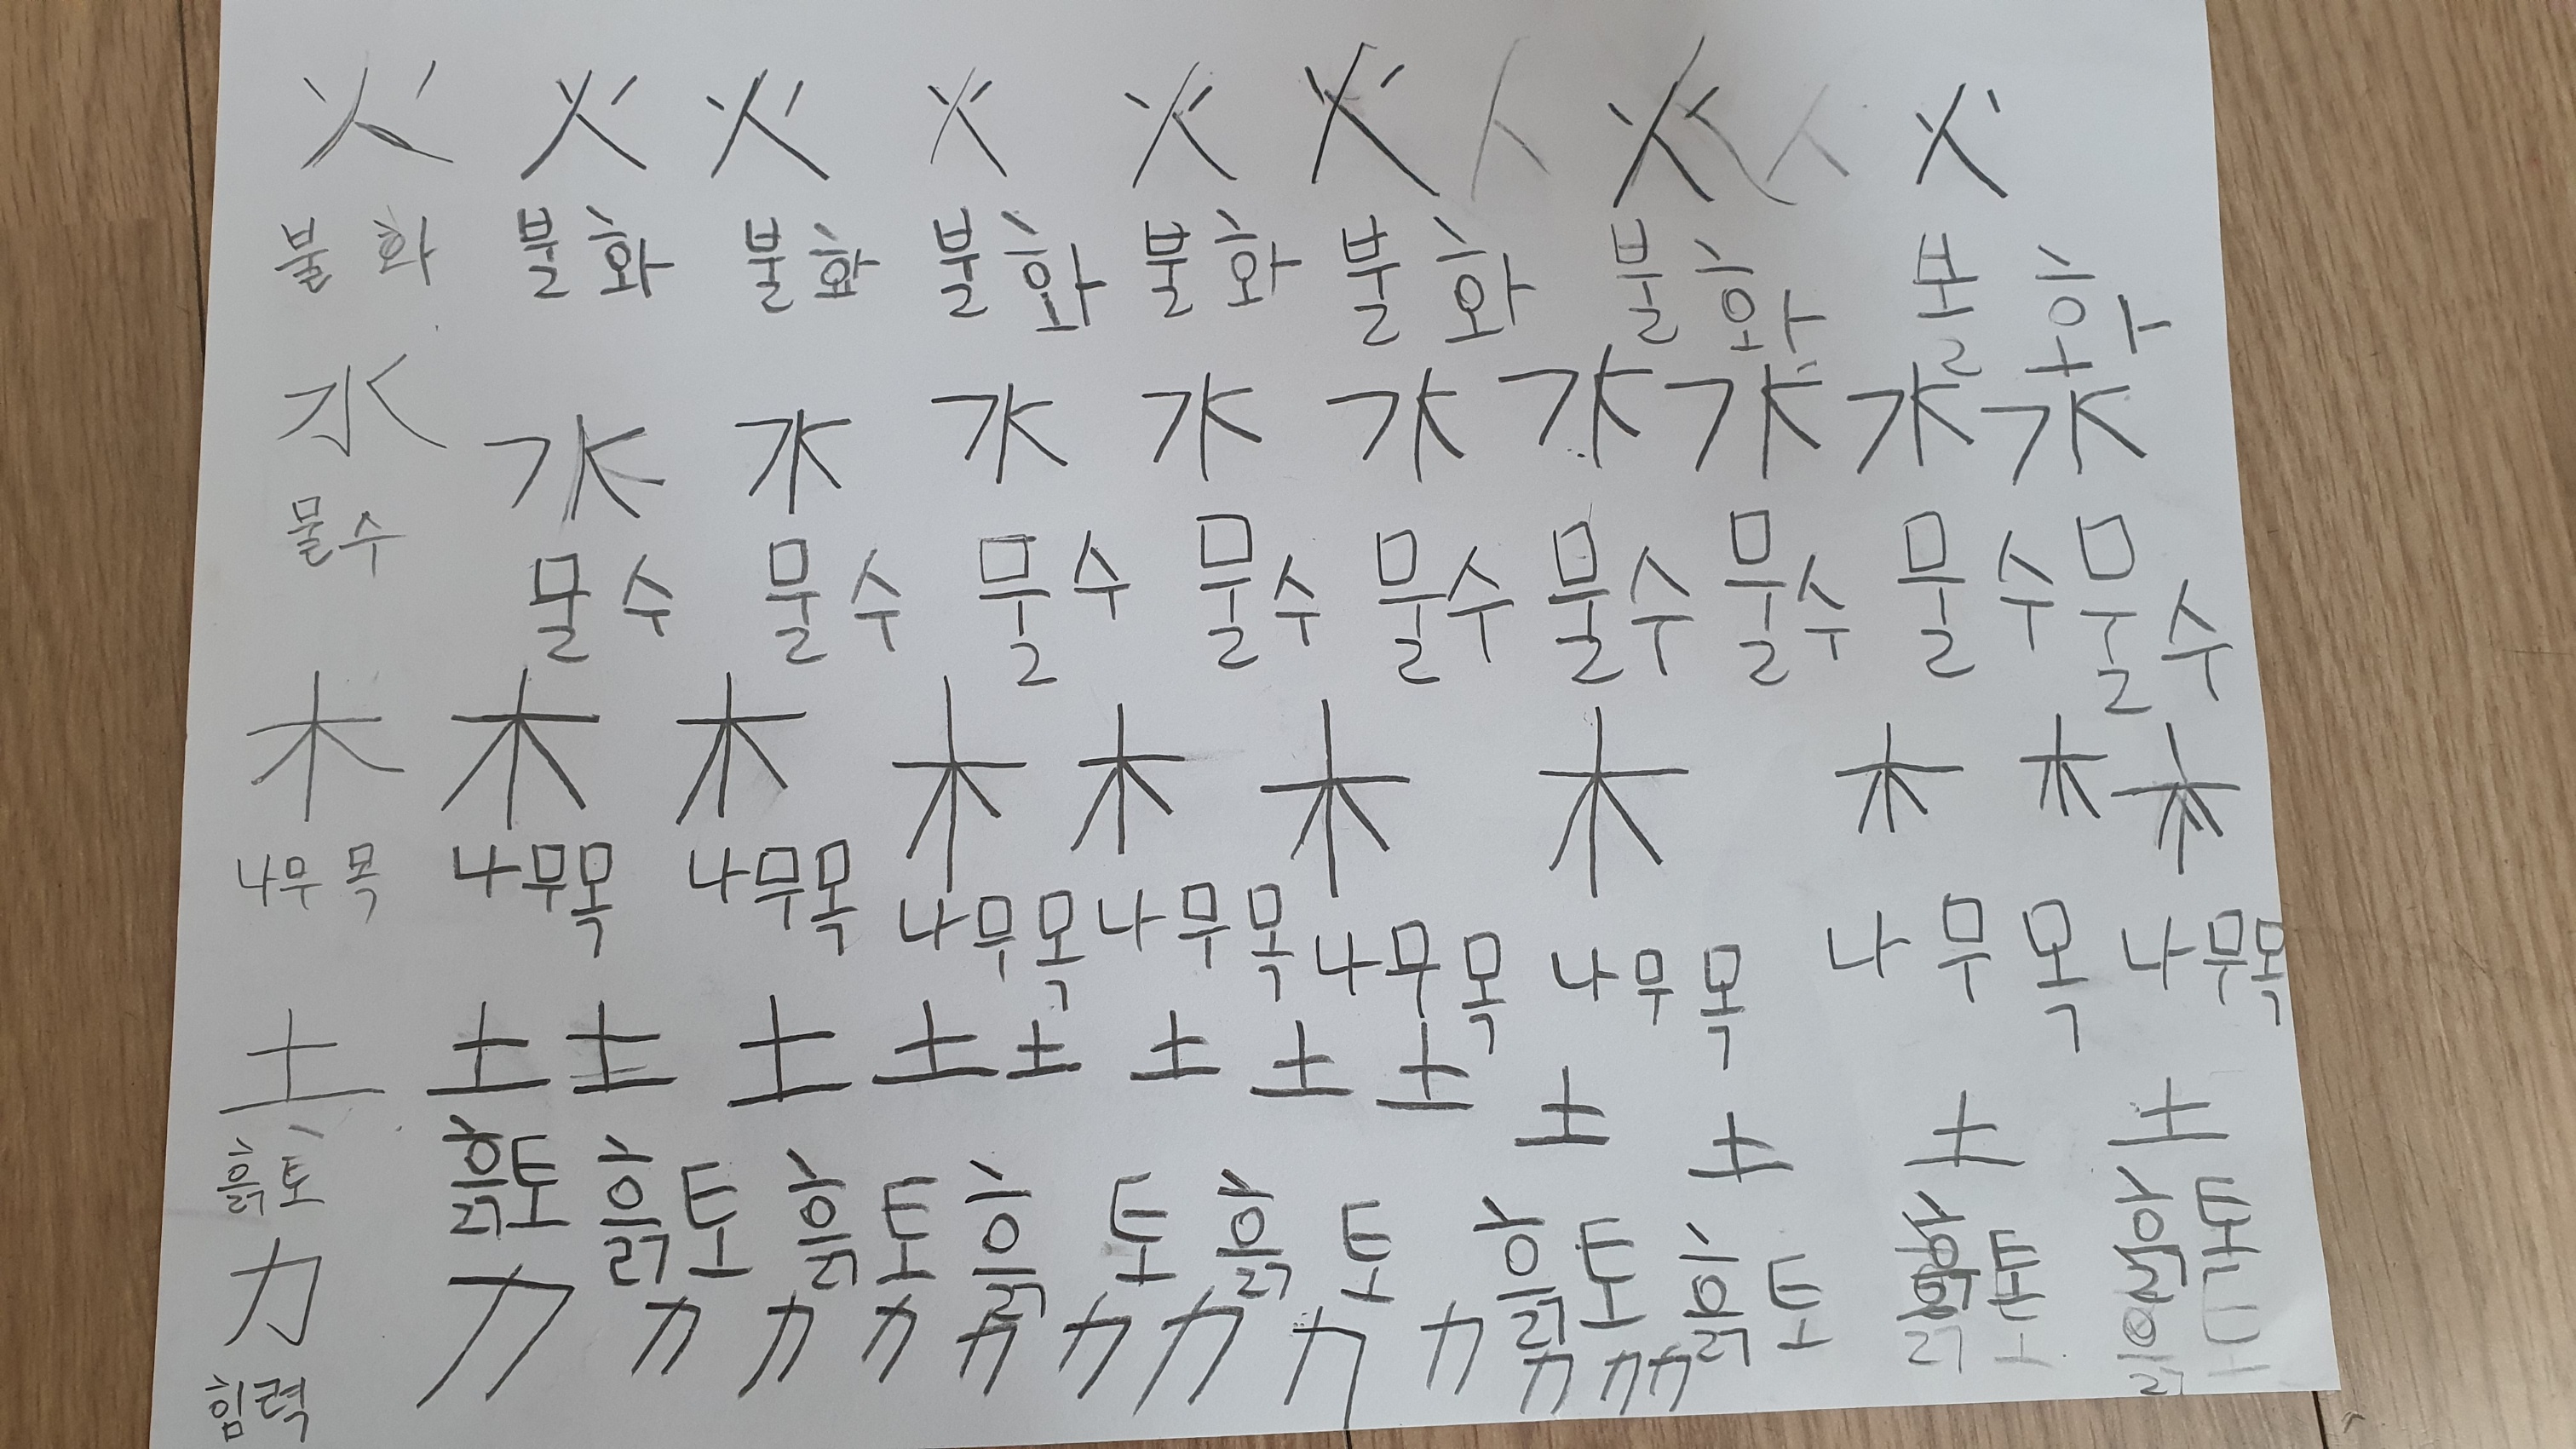 火 火 火 火 火 火 人 火 人 火
불 화 불 화 불 화 불 화 불 화 불 화 불 화 불 화
水 水 水 水 水 水 水 水 水 水
물수 물 수 물 수 물 수 물 수 물 수 물 수 물 수 물 수 물 수
木 木 木 木 木 木 木 木 木 木
나무 목 나무목 나무목 나무목 나무목 나무목 나무목 나무목 나무목
土 土 土 土 土 土 土 土 土 土 土 土 土
흙토 흙토 흙토 흙토 흙 토 흙 토 흙토 흙토 흙토 흙토
力 力 力 力 力 力 力 力 力 力 力 力 力
힘력